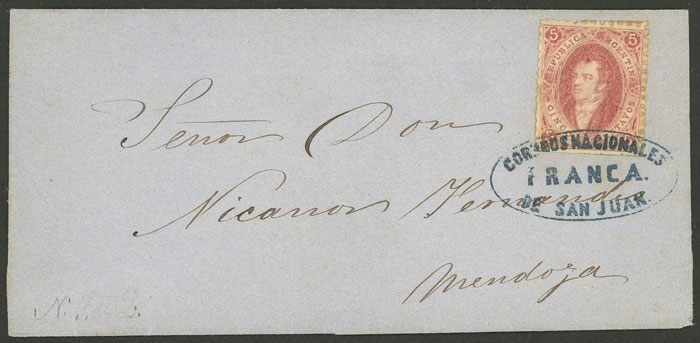 5 5
REPUBLICA ARGENTINA
CINCO CENTAVOS
Señor Don
CORREOS NACIONALES
FRANCA.
DE SAN JUAN.
Nicanor Fernandez
Mendoza